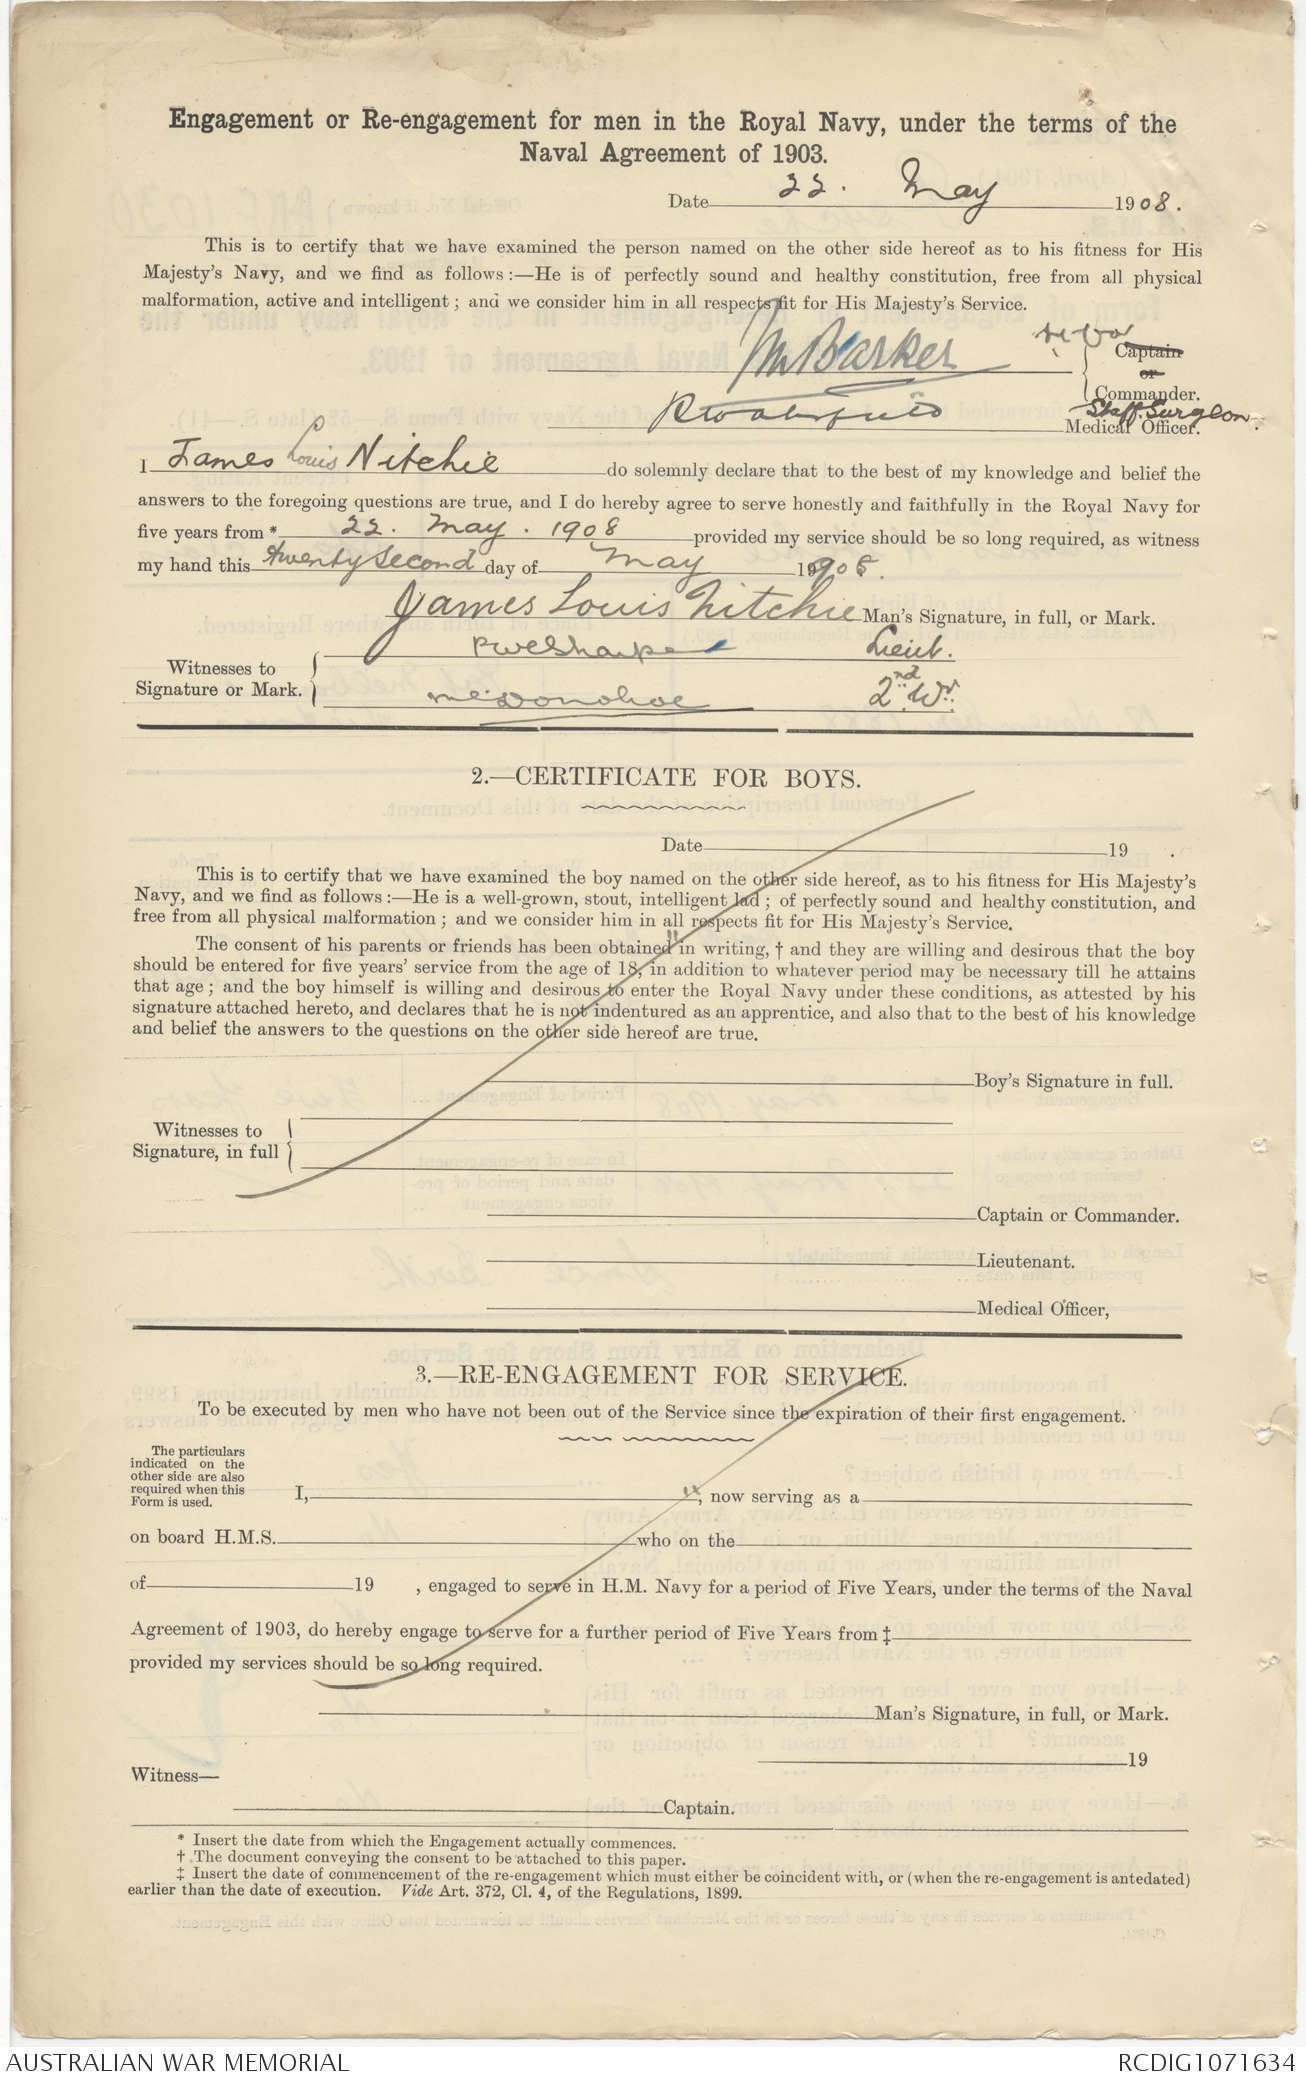 Engagement or Re-engagement for men in the Royal Navy, under the terms of the
Naval Agreement of 1903.
Date 22. May 1908.
This is to certify that we have examined the person named on the other side hereof as to his fitness for His
Majesty's Navy, and we find as follows:—He is of perfectly sound and healthy constitution, free from all physical
malformation, active and intelligent; and we consider him in all respects fit for His Majesty's Service.
Barker
Captain
or
Commander.
Staff Surgeon.
Medical Officer.
I James Louis Nitchie do solemnly declare that to the best of my knowledge and belief the
answers to the foregoing questions are true, and I do hereby agree to serve honestly and faithfully in the Royal Navy for
five years from * 22. May. 1908 provided my service should be so long required, as witness
my hand this twenty second day of May 1908.
James Louis Nitchie Man's Signature, in full, or Mark.
Witnesses to
Signature or Mark.
Lieut.
2nd Wr.
2.—CERTIFICATE FOR BOYS.
Date 19 .
This is to certify that we have examined the boy named on the other side hereof, as to his fitness for His Majesty's
Navy, and we find as follows:—He is a well-grown, stout, intelligent lad; of perfectly sound and healthy constitution, and
free from all physical malformation; and we consider him in all respects fit for His Majesty's Service.
The consent of his parents or friends has been obtained in writing, † and they are willing and desirous that the boy
should be entered for five years' service from the age of 18, in addition to whatever period may be necessary till he attains
that age; and the boy himself is willing and desirous to enter the Royal Navy under these conditions, as attested by his
signature attached hereto, and declares that he is not indentured as an apprentice, and also that to the best of his knowledge
and belief the answers to the questions on the other side hereof are true.
Boy's Signature in full.
Witnesses to
Signature, in full
Captain or Commander.
Lieutenant.
Medical Officer,
3.—RE-ENGAGEMENT FOR SERVICE.
To be executed by men who have not been out of the Service since the expiration of their first engagement.
The particulars
indicated on the
other side are also
required when this
Form is used.
I, , now serving as a
on board H.M.S. who on the
of 19 , engaged to serve in H.M. Navy for a period of Five Years, under the terms of the Naval
Agreement of 1903, do hereby engage to serve for a further period of Five Years from ‡
provided my services should be so long required.
Man's Signature, in full, or Mark.
19
Witness—
Captain.
* Insert the date from which the Engagement actually commences.
† The document conveying the consent to be attached to this paper.
‡ Insert the date of commencement of the re-engagement which must either be coincident with, or (when the re-engagement is antedated)
earlier than the date of execution. Vide Art. 372, Cl. 4, of the Regulations, 1899.
AUSTRALIAN WAR MEMORIAL
RCDIG1071634